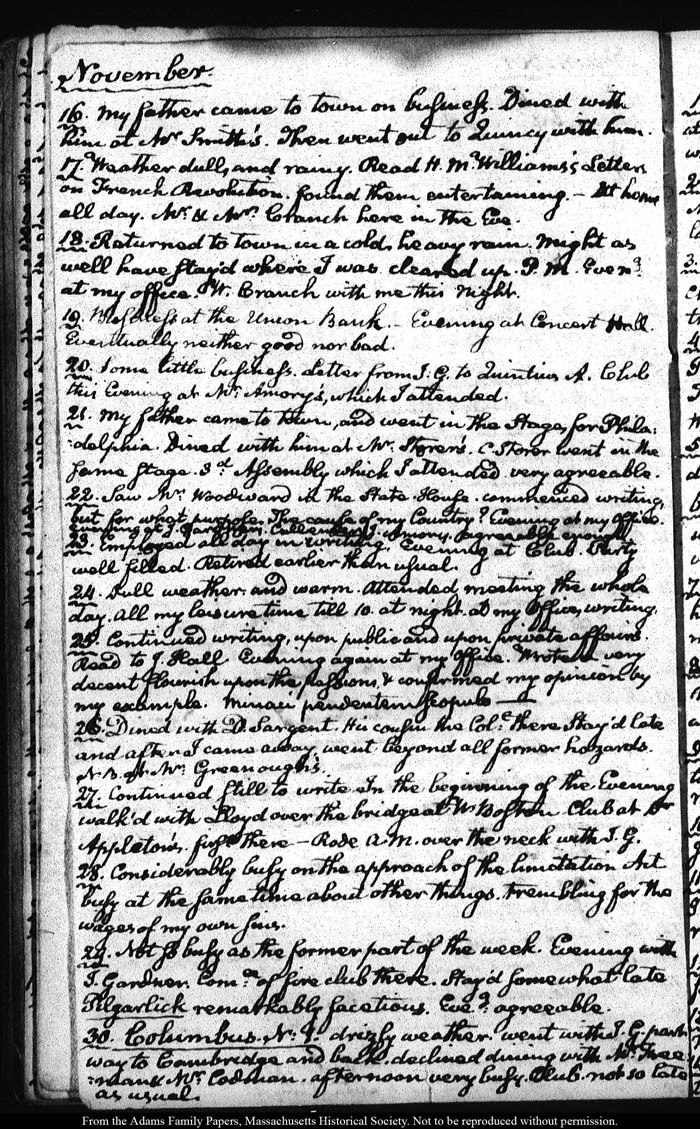 November.
16. My father came to town on business. Dined with
him at Mr. Smith's. Then went out to Quincy with him.
17. Weather dull, and rainy. Read H. M. Williams's Letters
on French Revolution. found them entertaining. — At home
all day. Mr. & Mrs. Cranch here in the Eve.
18. Returned to town in a cold, heavy rain. Might as
well have stay'd where I was. cleared up. P.M. Eveng.
at my office. W. Cranch with me this Night.
19. Business at the Union Bank. — Evening at Concert Hall.
Eventually neither good nor bad.
20. Some little business. Letter from J. G. to Quintius A. Club
this Evening at Mr. Amory's, which I attended.
21. My father came to town, and went in the Stage, for Phila:
:delphia. Dined with him at Mr. Storer's. C Storer went in the
same stage. 3d. Assembly which I attended very agreeable.
22. Saw Mr. Woodward in the State House. commenced writing,
but for what purpose. The cause of my Country? Evening at my Office.
23. Employed all day in writing, Evening at Club. Party
well filled. Retired earlier than usual.
24. Dull weather, and warm. Attended meeting the whole
day. All my leisure time till 10. at night. at my Office, writing.
25. Continued writing, upon public and upon private affairs.
Read to J. Hall Evening again at my Office. Wrote a very
decent flourish upon the passions, & confirmed my opinion by
my example. —
26. Dined with D. Sargent. His cousin the Col: there Stay'd late
and after I came away, went beyond all former hazards.
N.B. At Mr. Greenough's.
27. Continued still to write. In the beginning of the Evening
walk'd with Lloyd over the bridge at Wt. Boston. Club at Dr.
Appleton's. first there — Rode A.M. over the neck with J. G.
28. Considerably busy on the approach of the limitation Act
busy at the same time about other things. trembling for the
wages of my own sins.
29. Not so busy as the former part of the week. Evening with
J. Gardner. Comee. of fire club there. Stay'd somewhat late
Pilgarlick remarkably facetious. Eveg. agreeable.
30. Columbus. N: 1. drizly weather. went with J. G. part
way to Cambridge and back. declined dining with Mr. Free:
:man & Mr. Codman. afternoon very busy. Club. not so late
as usual.
From the Adams Family Papers, Massachusetts Historical Society. Not to be reproduced without permission.